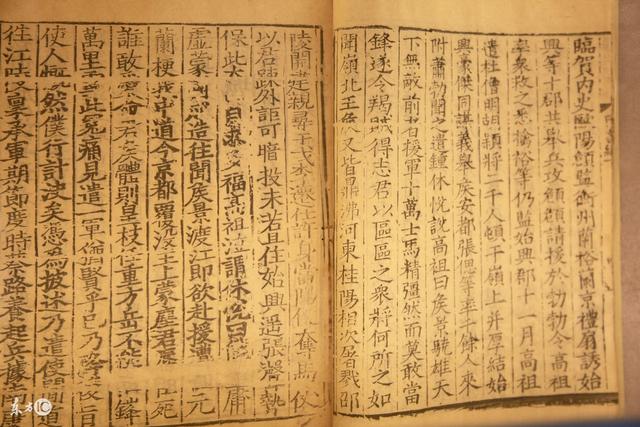 臨賀內史歐陽頠監衡州蘭裕蘭京禮扇誘始
興等十郡共舉兵攻頠頠請援於勃勃令高祖
率衆救之悉擒裕等仍監始興郡十一月高祖
遣杜僧明胡穎將二千人頓于嶺上并厚結始
興豪傑同謀義舉侯安都張偲等率千餘人來
附蕭勃聞之遣鍾休悅說高祖曰侯景驍雄天
下無敵前者援軍十萬士馬精彊然而莫敢當
鋒遂令羯賊得志君以區區之衆將何所之如
聞嶺北王侯又皆鼎沸河東桂陽相次屠戮邵
陵開建親尋干戈李遷仕許身當陽便奪馬仗
以君疎外詎可暗投未若且住始興遙張聲勢
保此太山自求多福高祖泣謂休悅曰庸
虛蒙國成造往聞侯景渡江即欲赴援遭元
蘭梗我中道今京都覆沒主上蒙塵君辱死
誰敢愛命君侯體則皇枝任重方岳不能鋒
萬里雪此冤痛見遣一軍猶賢乎已乃旨
使人慨然僕行計決矣憑為披述乃遣使間道
往江陵稟承軍期節度時蔡路養起兵據南